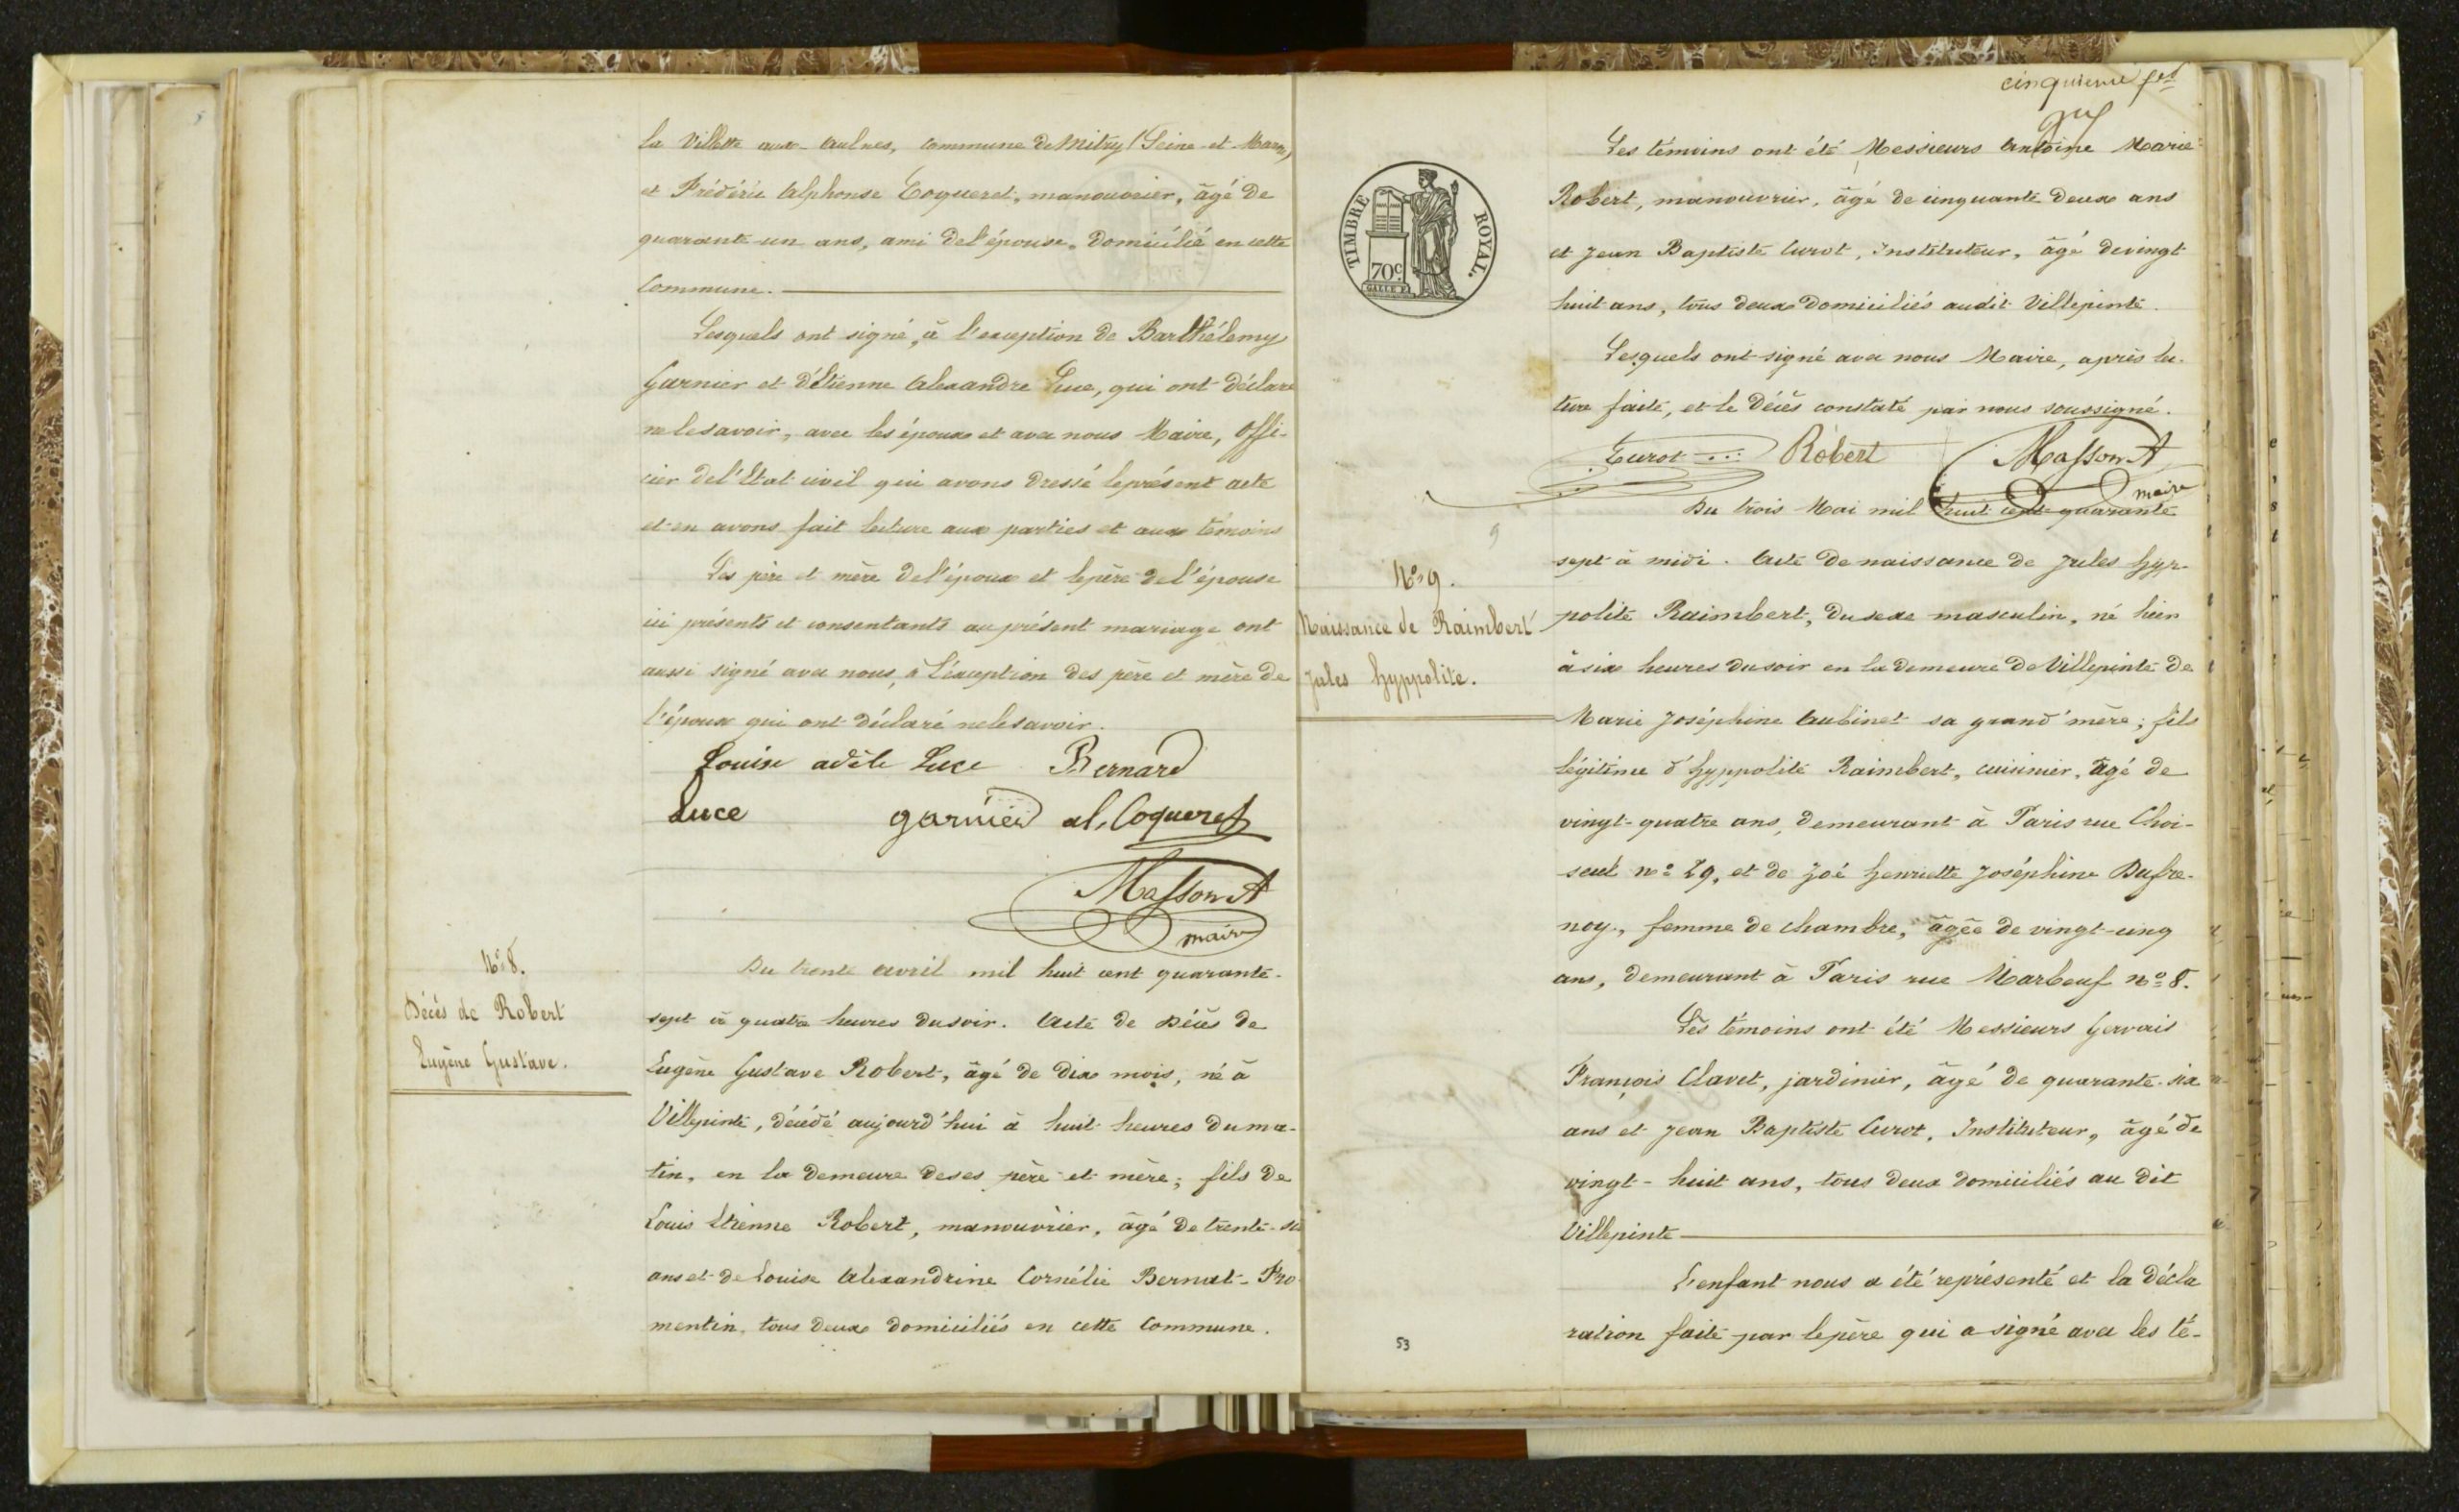 la Villette aux-Aulnes, commune de Mitry (Seine-et-Marne)
et Frédéric Alphonse Coqueret, manouvrier, âgé de
quarante-un ans, ami de l'épouse, domicilié en cette
Commune.
Lesquels ont signé, à l'exception de Barthélemy
Garnier et d'étienne Alexandre Luce, qui ont déclaré
ne le savoir, avec les époux et avec nous Maire, Offi-
cier de l'état civil qui avons dressé le présent acte
et en avons fait lecture aux parties et aux témoins
Les père et mère de l'époux et le père de l'épouse
ici présents et consentants au présent mariage ont
aussi signé avec nous, à l'exception des père et mère de
l'époux qui ont déclaré ne le savoir.
Louise adèle Luce Bernard
Luce garnier al. Coqueret
Masson A
maire
N° 8.
Décès de Robert
Eugène Gustave.
Du trente avril mil huit cent quarante-
sept à quatre heures du soir. Acte de Décès de
Eugène Gustave Robert, âgé de dix mois, né à
Villepinte, décédé aujourd'hui à huit heures du ma-
tin, en la demeure de ses père et mère; fils de
Louis Etienne Robert, manouvrier, âgé de trente-six
ans et de Louise Alexandrine Cornélie Bernat-Fro
mentin, tous deux domiciliés en cette Commune.
cinquième fet
TIMBRE ROYAL.
70c
Les témoins ont été Messieurs Antoine Marie
Robert, manouvrier, âgé de cinquante deux ans
et Jean Baptiste Curot, Instituteur, âgé de vingt
huit ans, tous deux domiciliés audit Villepinte.
Lesquels ont signé avec nous Maire, après lec-
ture faite, et le décès constaté par nous soussigné.
Curot Robert Masson A
maire
N° 9.
Naissance de Raimbert
Jules Hyppolite.
Du trois Mai mil huit cent quarante
sept à midi. Acte de naissance de Jules Hyp-
polite Raimbert, du sexe masculin, né hier
à six heures du soir en la demeure de Villepinte de
Marie Joséphine Aubinet sa grand'mère; fils
légitime d'Hyppolite Raimbert, cuisinier, âgé de
vingt-quatre ans, demeurant à Paris rue Choi-
seul n° 29, et de Zoé Henriette Joséphine Dufre-
noy, femme de chambre, âgée de vingt-cinq
ans, demeurant à Paris rue Marbeuf n° 8.
Les témoins ont été Messieurs Gervais
François Clavet, jardinier, âgé de quarante-six
ans et Jean Baptiste Curot, Instituteur, âgé de
vingt-huit ans, tous deux domiciliés au dit
Villepinte
L'enfant nous a été représenté et la décla
ration faite par le père qui a signé avec les té-
53